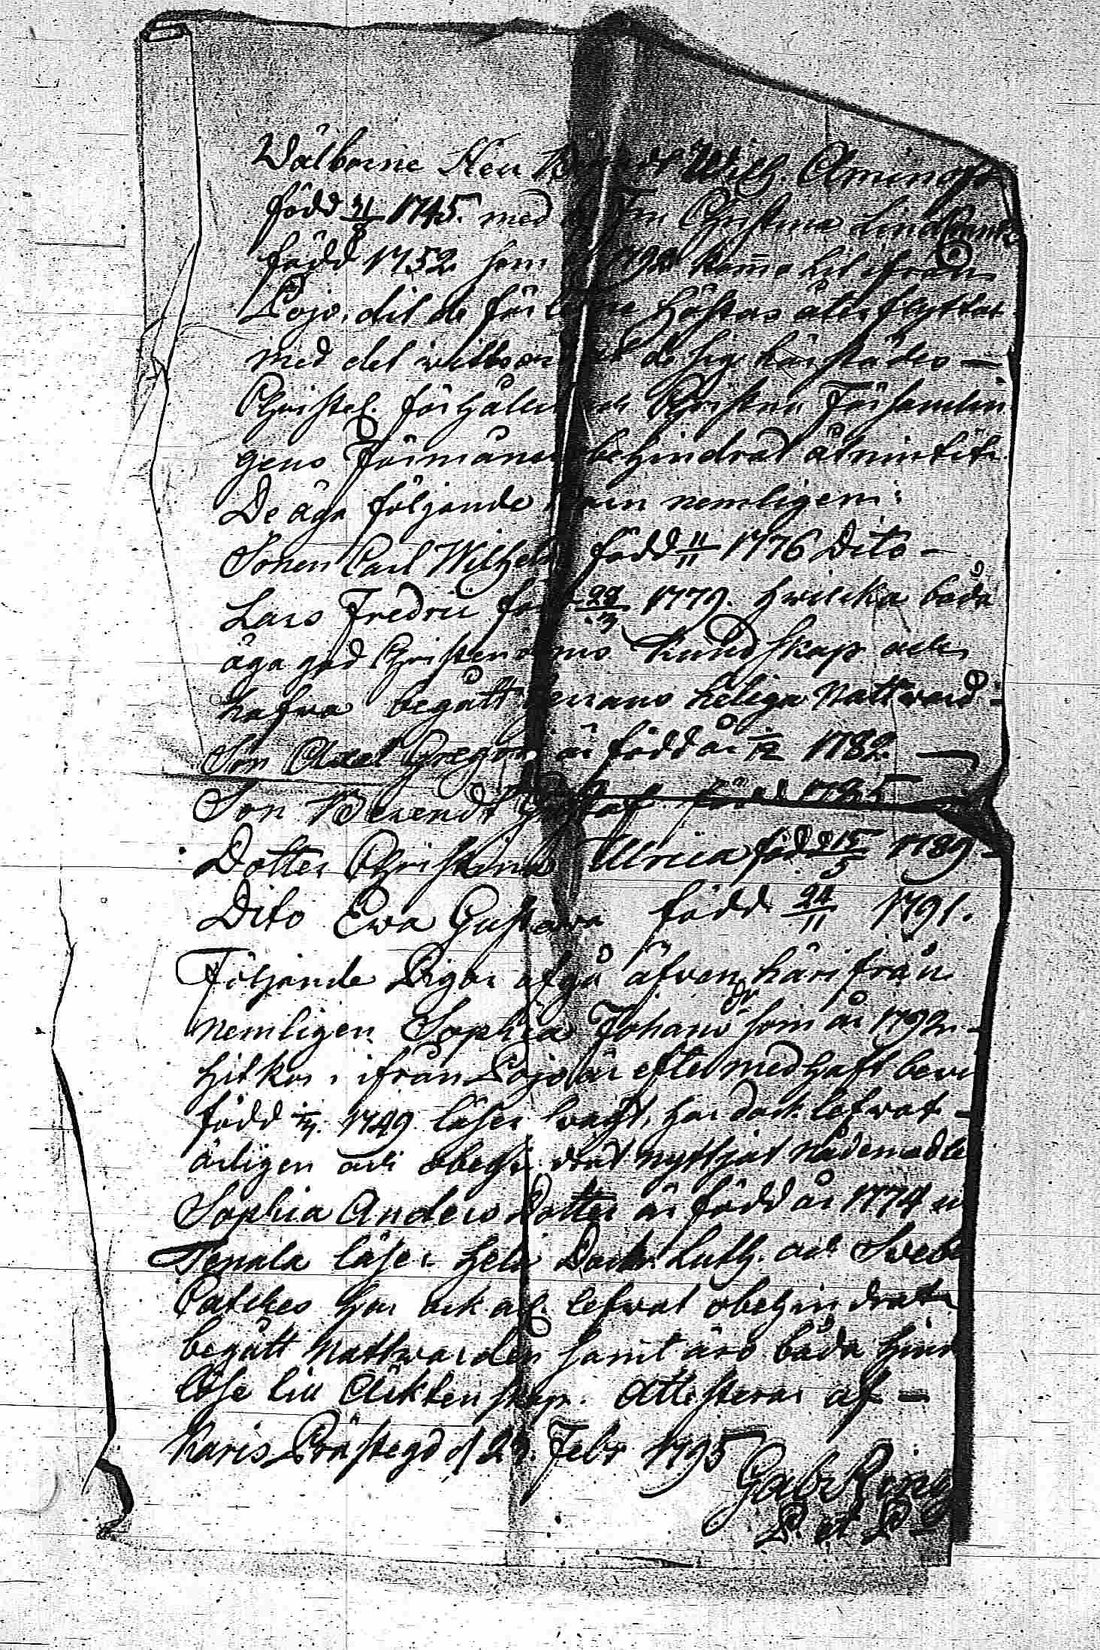 Wälborne Herr Wilh. Aminoff
född 1745. med Fru Christina
född 1752 som 1792 komo hit ifrån
Pojo, dit de förledne Höstas återflyttat
med det wittsord at de sig härstädes —
Christel. förhållit och Christna Församlin
gens Förmåner behindrat åtniutit.
De äga följande Barn nemligen:
Sonen Carl Wilhelm född 11/11 1776 Dito —
Lars Fredric född 28/3 1779. hwilcka båda
äga god Christendoms Kundskap och
hafva begått Herrans heliga Nattward —
Son Axel Gregori är född år /12 1782 —
Son Berendt Gustaf född 1785
Dotter Christina Ulrica född 15/5 1789 —
Dito Ewa Gustava född 24/11 1791.
Följande Pigor afgå äfven härifrån
nemligen Sophia Johans dr som år 1792 —
hitkom ifrån Pojo är efter medhaft bewi
född 1749 läser swagt, har dock lefwat —
ärligen och obehindrat nyttjat Nådemedle
Sophia Anders Dotter är född år 1774 u
Tenala läser hela Doct. Luth. och Sweb
Catches har ock lefwat obehindrat
begått Nattwarden samt äro båda hind
löse till Äktenskap. Attesteras af —
Karis Prästegd d 23. Febr 1795
Gab. Ring
P. et P.